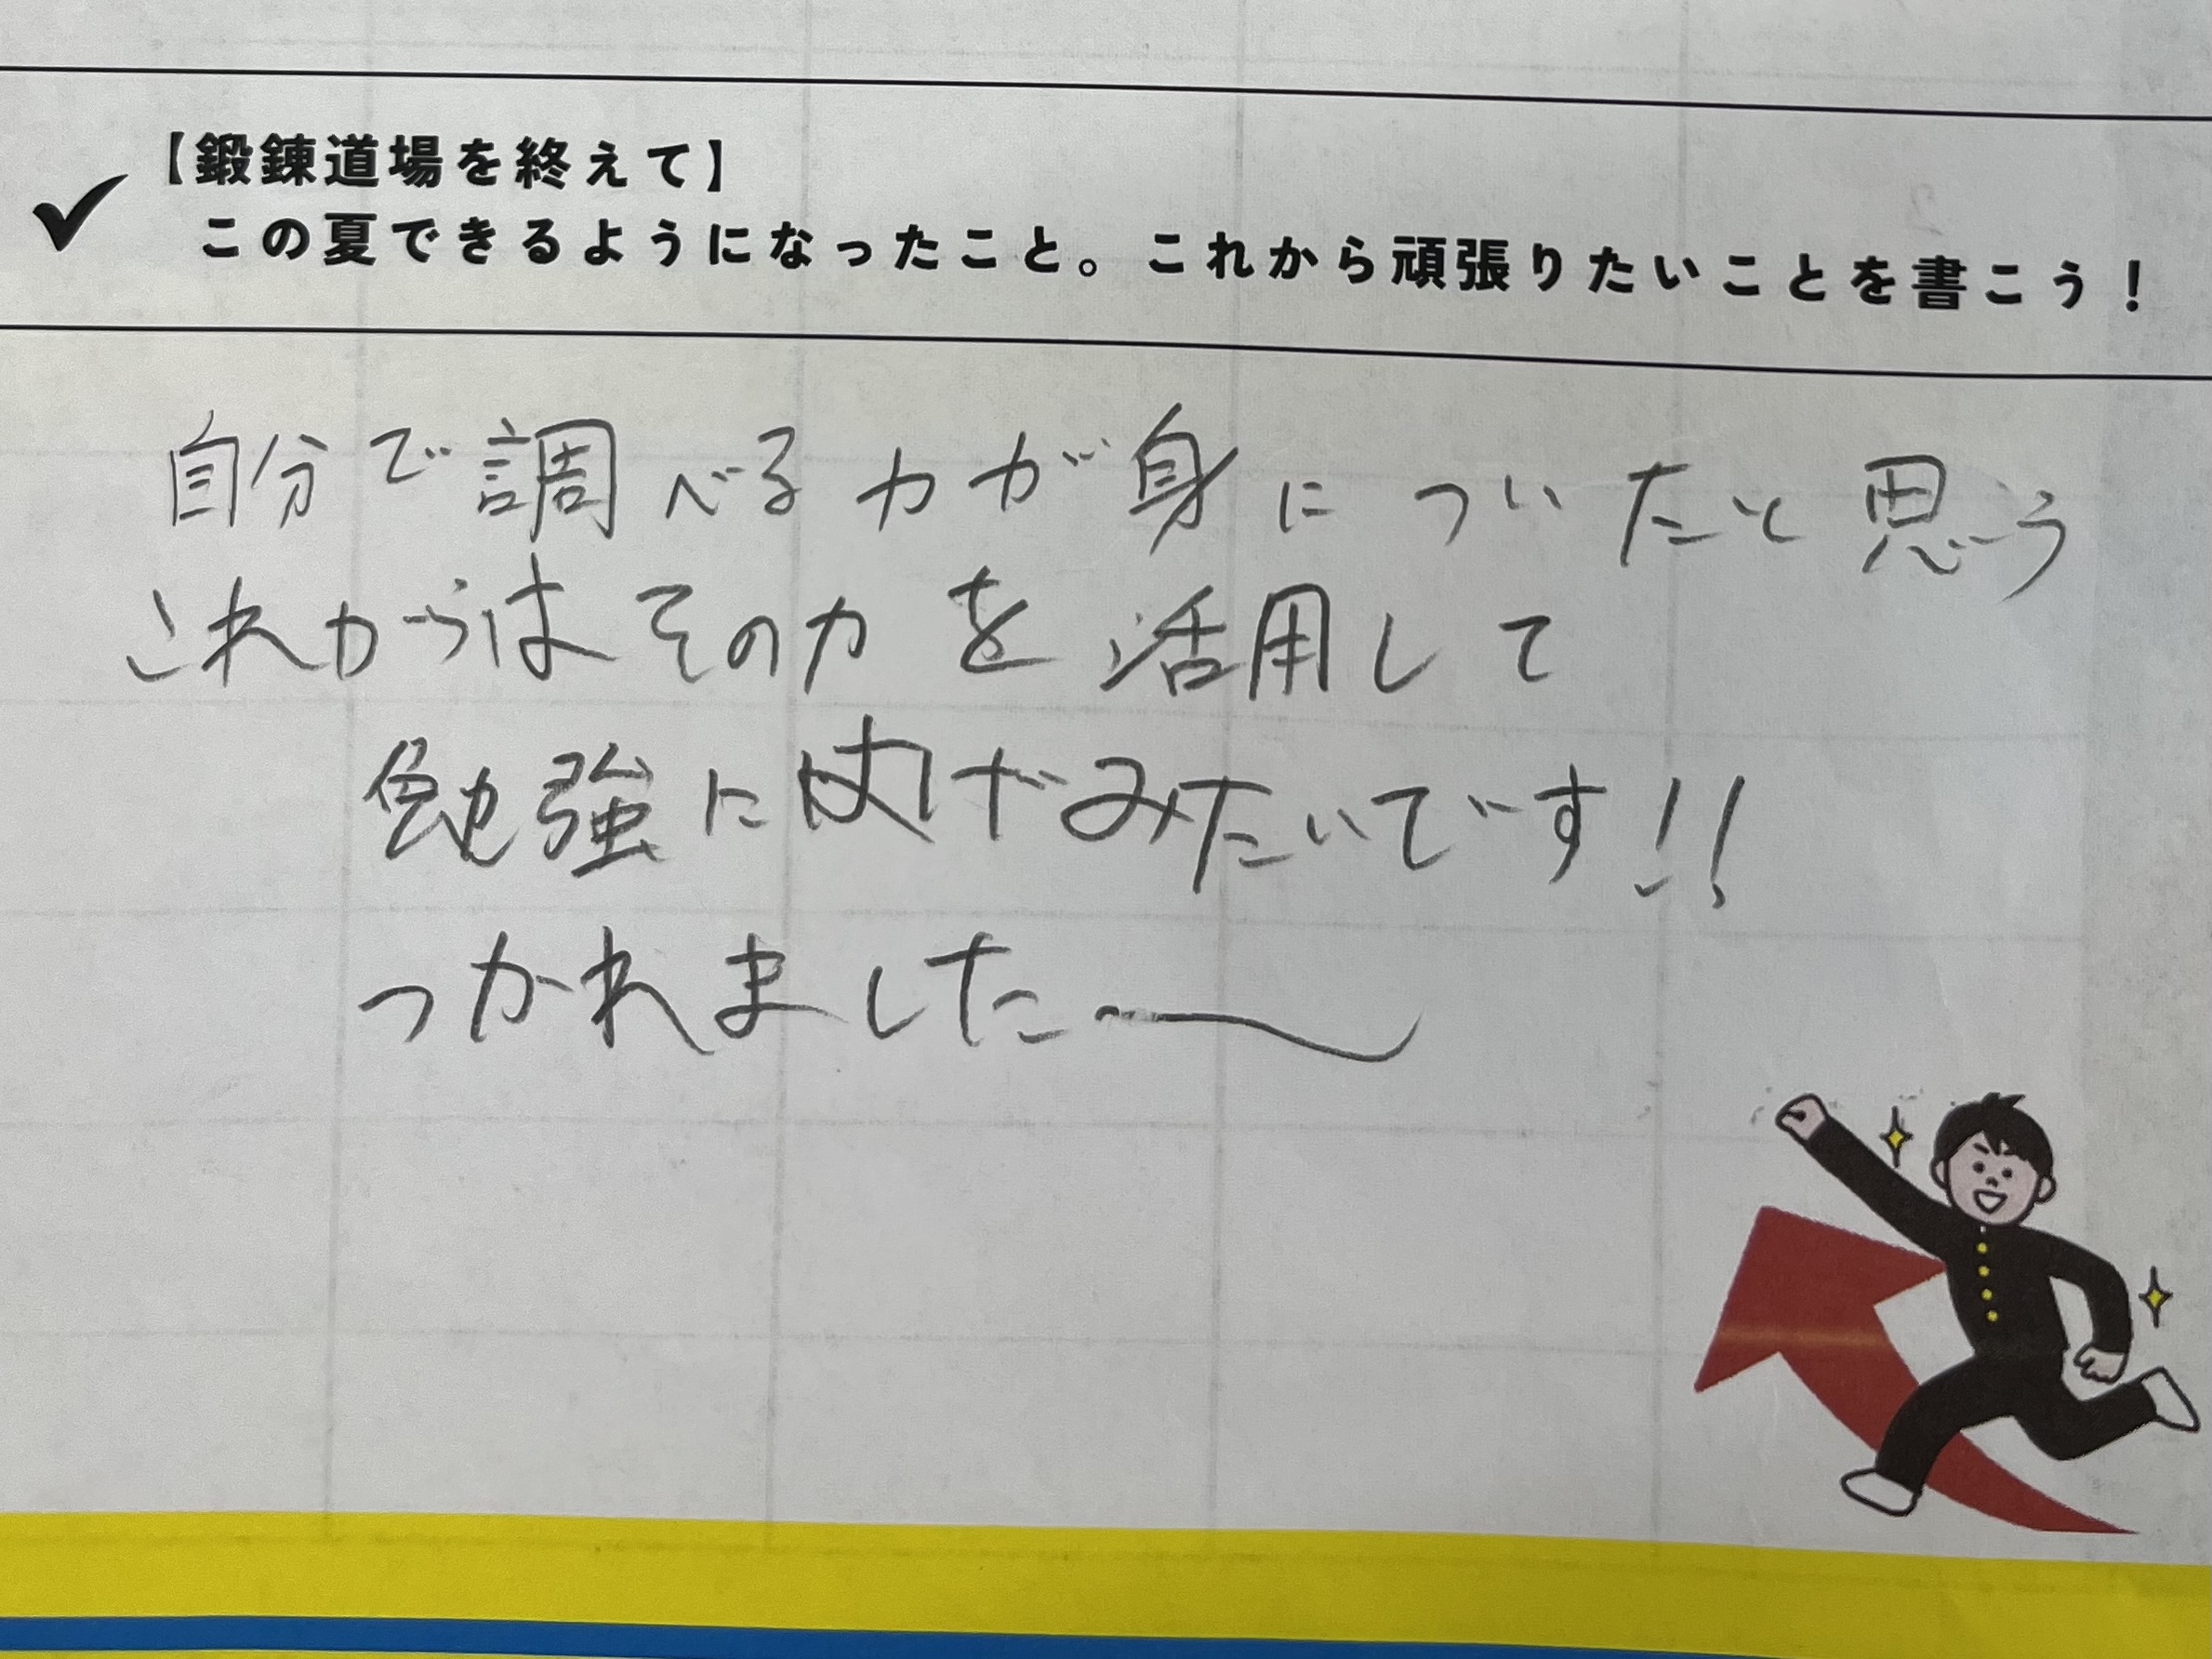 【鍛錬道場を終えて】
この夏できるようになったこと。これから頑張りたいことを書こう！
自分で調べる力が身についたと思う
これからはその力を活用して
勉強にはげみたいです!!
つかれました〜